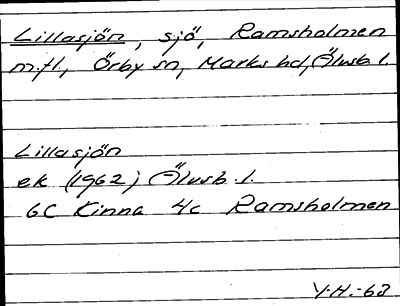 Lillasjön, sjö, Ramsholmen
m.fl., Örby sn, Marks hd, Älvsb. l.
Lillasjön
ek (1962) Älvsb. l.
6C Kinna 4c Ramsholmen
Y.H. -63